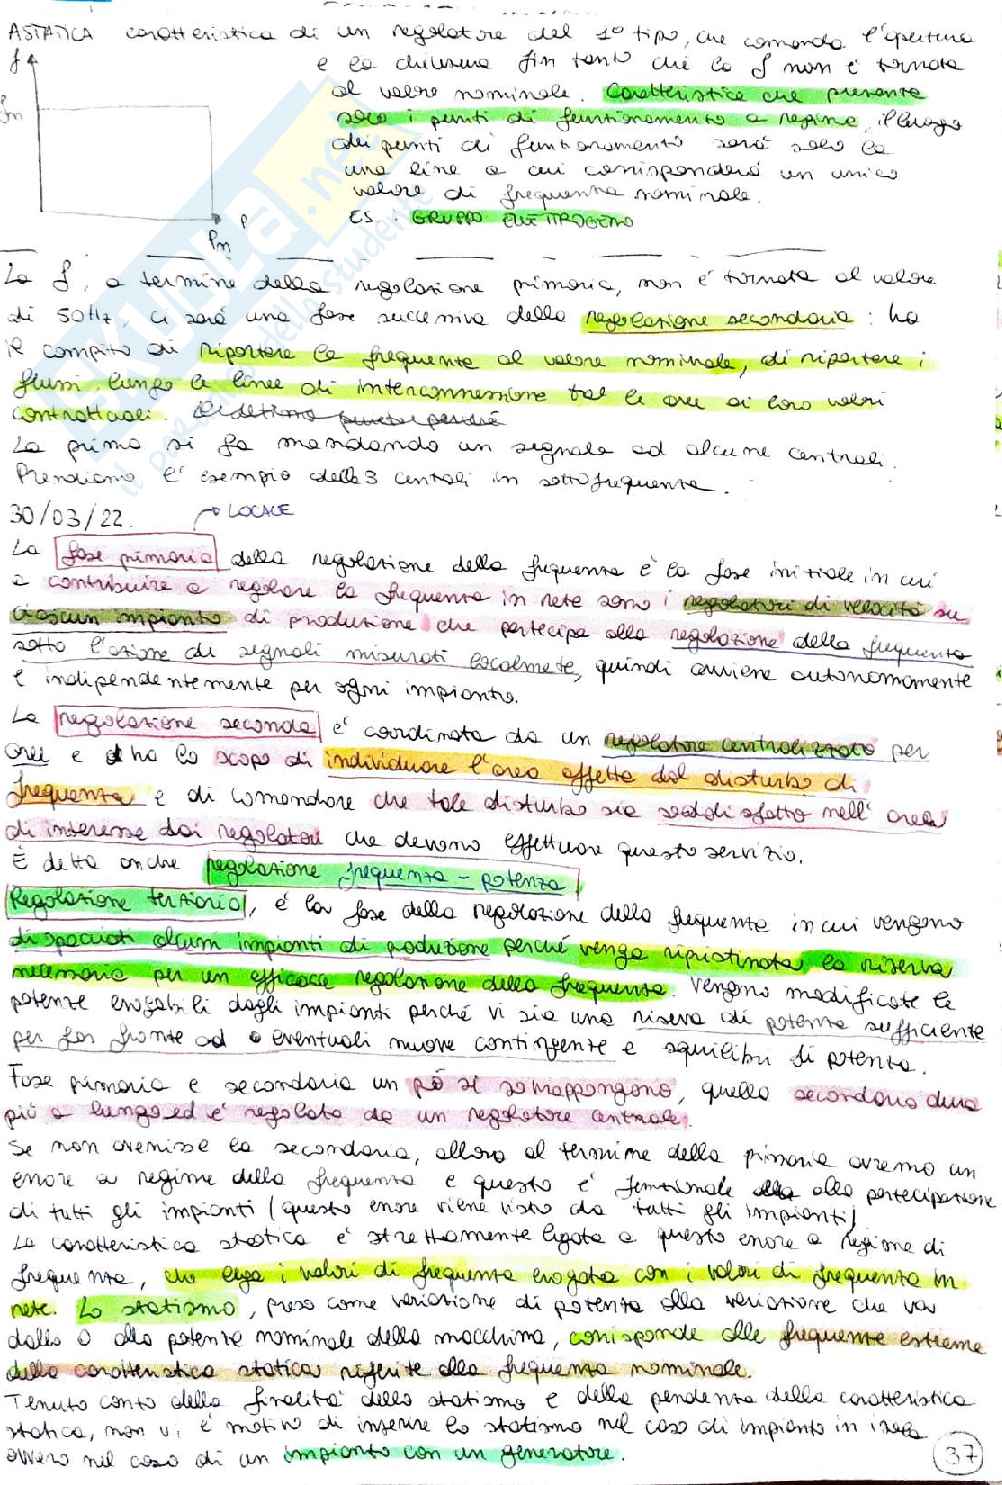 ASTATICA caratteristica di un regolatore del 1° tipo, che comanda l'apertura
f
e la chiusura fin tanto che la f non è tornata
al valore nominale. Caratteristica che presenta
fn
solo i punti di funzionamento a regime, il luogo
dei punti di funzionamento sarà solo la
una linea a cui corrisponderà un unico
valore di frequenza nominale.
P
ES. GRUPPO ELETTROGENO
Pn
La f, a termine della regolazione primaria, non è tornata al valore
di 50Hz, ci sarà una fase successiva della regolazione secondaria: ha
il compito di riportare la frequenza al valore nominale, di riportare i
flussi lungo le linee di interconnessione tra le aree ai loro valori
contrattuali.
La prima si fa mandando un segnale ad alcune centrali.
Prendiamo l'esempio delle 3 centrali in sottofrequenza.
30/03/22. LOCALE
La fase primaria della regolazione della frequenza è la fase iniziale in cui
a contribuire a regolare la frequenza in rete sono i regolatori di velocità su
ciascun impianto di produzione che partecipa alla regolazione della frequenza
sotto l'azione di segnali misurati localmente, quindi avviene autonomamente
e indipendentemente per ogni impianto.
La regolazione seconda è coordinata da un regolatore centralizzato per
aree e ha lo scopo di individuare l'area affetta dal disturbo di
frequenza e di comandare che tale disturbo sia soddisfatto nell'area
di interesse dai regolatori che devono effettuare questo servizio.
È detta anche regolazione frequenza - potenza
Regolazione terziaria, è la fase della regolazione della frequenza in cui vengono
dispacciati alcuni impianti di produzione perché venga ripristinata la riserva
necessaria per un efficace regolazione della frequenza. Vengono modificate le
potenze erogabili dagli impianti perché vi sia una riserva di potenza sufficiente
per far fronte ad eventuali nuove contingenze e squilibri di potenza.
Fase primaria e secondaria un pò si sovrappongono, quella secondaria dura
più a lungo ed è regolata da un regolatore centrale.
Se non avenisse la secondaria, allora al termine della primaria avremo un
errore a regime della frequenza e questo è funzionale alla partecipazione
di tutti gli impianti (questo errore viene visto da tutti gli impianti)
La caratteristica statica è strettamente legata a questo errore a regime di
frequenza, che lega i valori di frequenza erogata con i valori di frequenza in
rete. Lo statismo, preso come variazione di potenza alla variazione che va
dallo 0 alla potenza nominale della macchina, corrisponde alle frequenze estreme
della caratteristica statica riferite alla frequenza nominale.
Tenuto conto della finalità dello statismo e della pendenza della caratteristica
statica, non vi è motivo di inserire lo statismo nel caso di impianto in isola
ovvero nel caso di un impianto con un generatore.
37